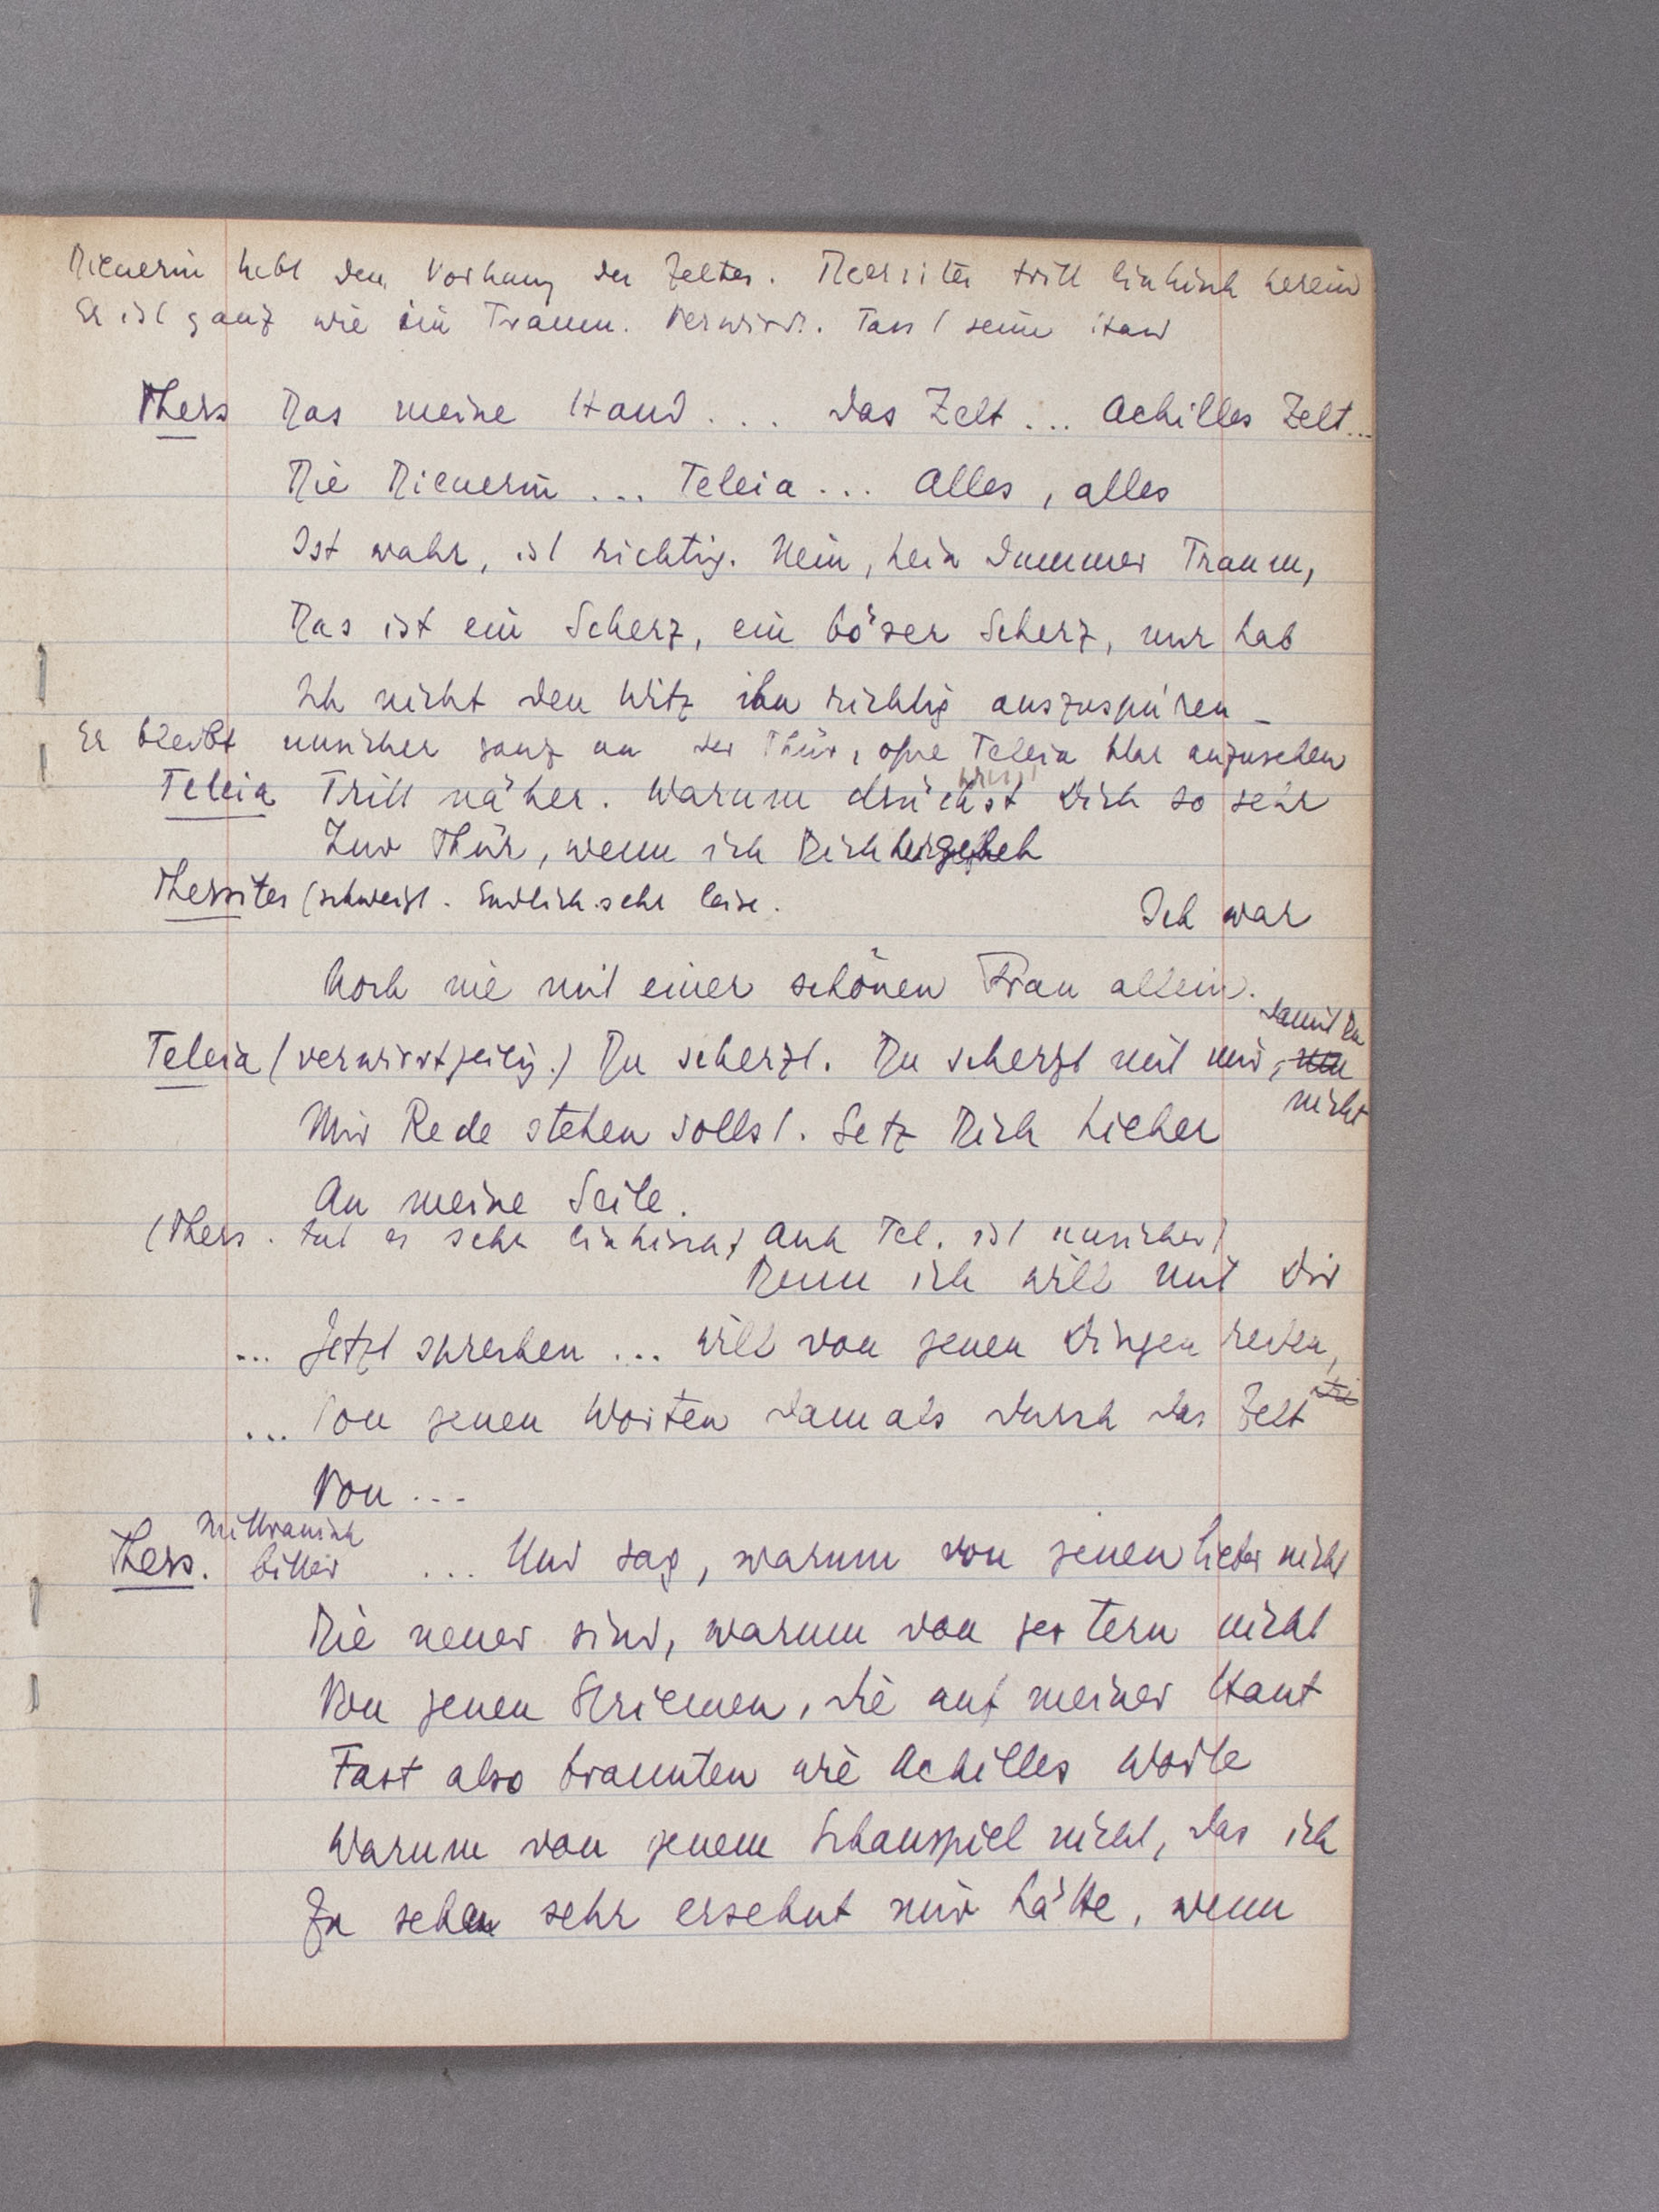 Dienerin hebt den Vorhang des Zeltes. Thersites tritt linkisch herein
Er ist ganz wie im Traum. Verwirrt. Fasst seine Hand
Thers Das meine Hand ... das Zelt ... Achilles Zelt...
Die Dienerin ... Teleia ... Alles, alles
Ist wahr, ist richtig. Nein, kein dummer Traum,
Das ist ein Scherz, ein böser Scherz, nur hab
Ich nicht den Witz ihn richtig auszuspüren –
Er bleibt unsicher ganz an der Thür, ohne Teleia klar anzusehen
Teleia Tritt näher. Warum drückst Dich so sehr
Zur Thür, wenn ich Dich
Thersites (schweigt. Endlich sehr leise.
Ich war
Noch nie mit einer schönen Frau allein.
damit Du
Teleia (verwirrt, eilig.) Du scherzt. Du scherzt mit mir,
nicht
Mir Rede stehen sollst. Setz Dich hieher
An meine Seite.
(Thers. tut es sehr linkisch, Auch Tel. ist unsicher)
Denn ich will mit Dir
... Jetzt sprechen ... will von jenen Dingen reden,
... Von jenen Worten damals durch das Zelt
Von ...
Misstrauisch
Thers. bitter ... Und sag, warum von jenen lieber nicht
Die neuer sind, warum von gestern nicht
Von jenen Striemen, die auf meiner Haut
Fast also brannten wie Achilles Worte
Warum von jenem Schauspiel nicht, das ich
Zu sehen sehr ersehnt mir hätte, wenn